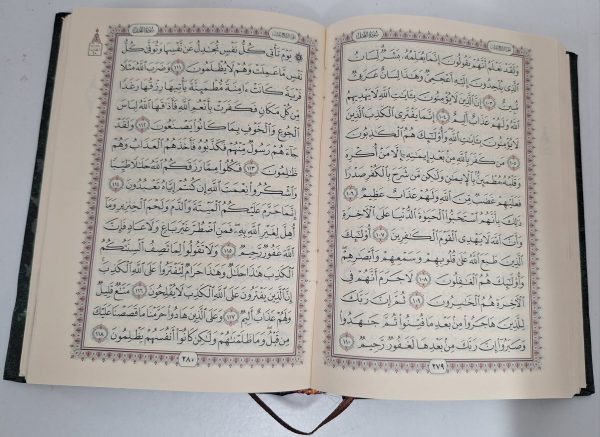 وَلَقَدْ نَعْلَمُ أَنَّهُمْ يَقُولُونَ إِنَّمَا يُعَلِّمُهُۥ بَشَرٌ لِّسَانُ
ٱلَّذِي يُلْحِدُونَ إِلَيْهِ أَعْجَمِيٌّ وَهَٰذَا لِسَانٌ عَرَبِيٌّ
مُّبِينٌ ١٠٣ إِنَّ ٱلَّذِينَ لَا يُؤْمِنُونَ بِـَٔايَٰتِ ٱللَّهِ لَا يَهْدِيهِمُ
ٱللَّهُ وَلَهُمْ عَذَابٌ أَلِيمٌ ١٠٤ إِنَّمَا يَفْتَرِي ٱلْكَذِبَ ٱلَّذِينَ
لَا يُؤْمِنُونَ بِـَٔايَٰتِ ٱللَّهِ وَأُو۟لَٰٓئِكَ هُمُ ٱلْكَٰذِبُونَ
١٠٥ مَن كَفَرَ بِٱللَّهِ مِنۢ بَعْدِ إِيمَٰنِهِۦٓ إِلَّا مَنْ أُكْرِهَ
وَقَلْبُهُۥ مُطْمَئِنٌّۢ بِٱلْإِيمَٰنِ وَلَٰكِن مَّن شَرَحَ بِٱلْكُفْرِ صَدْرًا
فَعَلَيْهِمْ غَضَبٌ مِّنَ ٱللَّهِ وَلَهُمْ عَذَابٌ عَظِيمٌ ١٠٦
ذَٰلِكَ بِأَنَّهُمُ ٱسْتَحَبُّوا۟ ٱلْحَيَوٰةَ ٱلدُّنْيَا عَلَى ٱلْأَخِرَةِ
وَأَنَّ ٱللَّهَ لَا يَهْدِي ٱلْقَوْمَ ٱلْكَٰفِرِينَ ١٠٧ أُو۟لَٰٓئِكَ
ٱلَّذِينَ طَبَعَ ٱللَّهُ عَلَىٰ قُلُوبِهِمْ وَسَمْعِهِمْ وَأَبْصَٰرِهِمْ
وَأُو۟لَٰٓئِكَ هُمُ ٱلْغَٰفِلُونَ ١٠٨ لَا جَرَمَ أَنَّهُمْ فِي
ٱلْأَخِرَةِ هُمُ ٱلْخَٰسِرُونَ ١٠٩ ثُمَّ إِنَّ رَبَّكَ
لِلَّذِينَ هَاجَرُوا۟ مِنۢ بَعْدِ مَا فُتِنُوا۟ ثُمَّ جَٰهَدُوا۟
وَصَبَرُوٓا۟ إِنَّ رَبَّكَ مِنۢ بَعْدِهَا لَغَفُورٌ رَّحِيمٌ ١١٠
٢٧٩
۞ يَوْمَ تَأْتِي كُلُّ نَفْسٍ تُجَٰدِلُ عَن نَّفْسِهَا وَتُوَفَّىٰ كُلُّ
نَفْسٍ مَّا عَمِلَتْ وَهُمْ لَا يُظْلَمُونَ ١١١ وَضَرَبَ ٱللَّهُ مَثَلًا
قَرْيَةً كَانَتْ ءَامِنَةً مُّطْمَئِنَّةً يَأْتِيهَا رِزْقُهَا رَغَدًا
مِّن كُلِّ مَكَانٍ فَكَفَرَتْ بِأَنْعُمِ ٱللَّهِ فَأَذَٰقَهَا ٱللَّهُ لِبَاسَ
ٱلْجُوعِ وَٱلْخَوْفِ بِمَا كَانُوا۟ يَصْنَعُونَ ١١٢ وَلَقَدْ
جَآءَهُمْ رَسُولٌ مِّنْهُمْ فَكَذَّبُوهُ فَأَخَذَهُمُ ٱلْعَذَابُ وَهُمْ
ظَٰلِمُونَ ١١٣ فَكُلُوا۟ مِمَّا رَزَقَكُمُ ٱللَّهُ حَلَٰلًا طَيِّبًا
وَٱشْكُرُوا۟ نِعْمَتَ ٱللَّهِ إِن كُنتُمْ إِيَّاهُ تَعْبُدُونَ ١١٤
إِنَّمَا حَرَّمَ عَلَيْكُمُ ٱلْمَيْتَةَ وَٱلدَّمَ وَلَحْمَ ٱلْخِنزِيرِ وَمَآ
أُهِلَّ لِغَيْرِ ٱللَّهِ بِهِۦ فَمَنِ ٱضْطُرَّ غَيْرَ بَاغٍ وَلَا عَادٍ فَإِنَّ
ٱللَّهَ غَفُورٌ رَّحِيمٌ ١١٥ وَلَا تَقُولُوا۟ لِمَا تَصِفُ أَلْسِنَتُكُمُ
ٱلْكَذِبَ هَٰذَا حَلَٰلٌ وَهَٰذَا حَرَامٌ لِّتَفْتَرُوا۟ عَلَى ٱللَّهِ ٱلْكَذِبَ
إِنَّ ٱلَّذِينَ يَفْتَرُونَ عَلَى ٱللَّهِ ٱلْكَذِبَ لَا يُفْلِحُونَ ١١٦ مَتَٰعٌ قَلِيلٌ
وَلَهُمْ عَذَابٌ أَلِيمٌ ١١٧ وَعَلَى ٱلَّذِينَ هَادُوا۟ حَرَّمْنَا مَا قَصَصْنَا عَلَيْكَ
مِن قَبْلُ وَمَا ظَلَمْنَٰهُمْ وَلَٰكِن كَانُوٓا۟ أَنفُسَهُمْ يَظْلِمُونَ ١١٨
٢٨٠